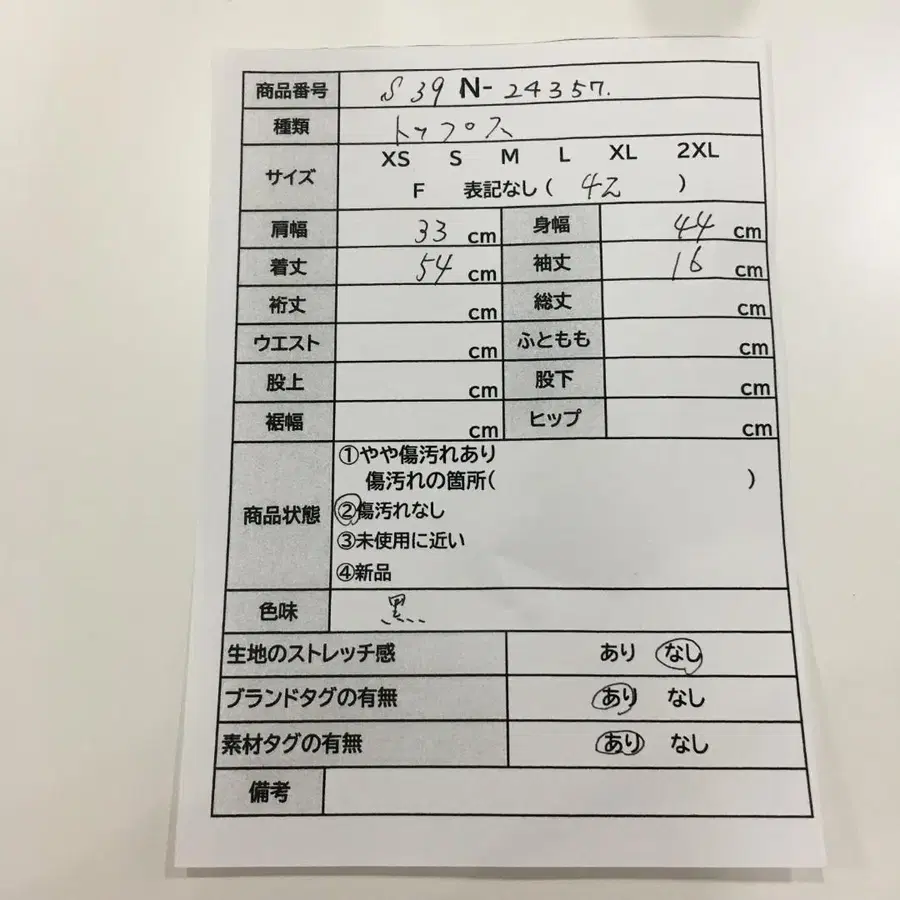 商品番号 S 39 N- 24357.
種類 トップス
サイズ XS S M L XL 2XL
F 表記なし ( 42 )
肩幅 33 cm 身幅 44 cm
着丈 54 cm 袖丈 16 cm
裄丈 cm 総丈 cm
ウエスト cm ふともも cm
股上 cm 股下 cm
裾幅 cm ヒップ cm
商品状態 ①やや傷汚れあり
傷汚れの箇所( )
②傷汚れなし
③未使用に近い
④新品
色味 黒
生地のストレッチ感 あり なし
ブランドタグの有無 あり なし
素材タグの有無 あり なし
備考